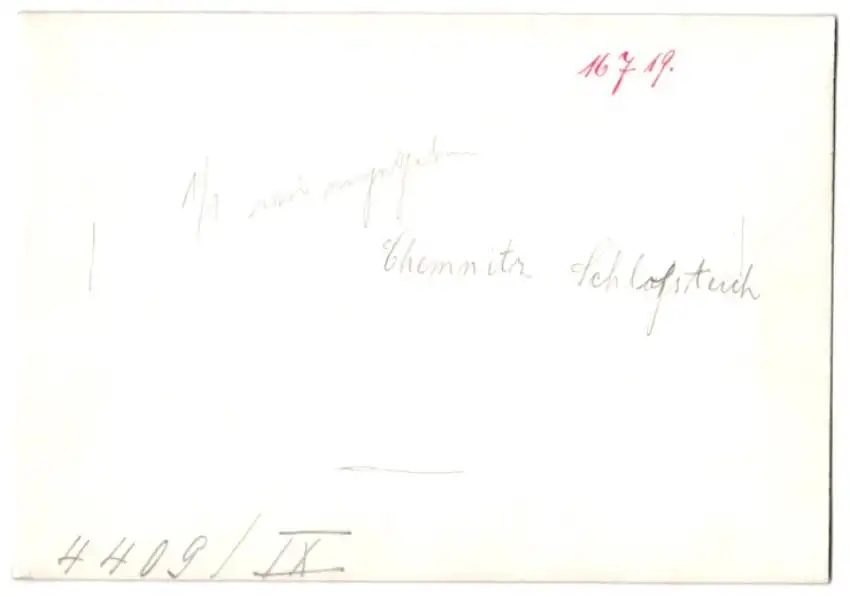 16 7 19.
1/1 wie angegeben
Chemnitz Schloßteich
4409/IX